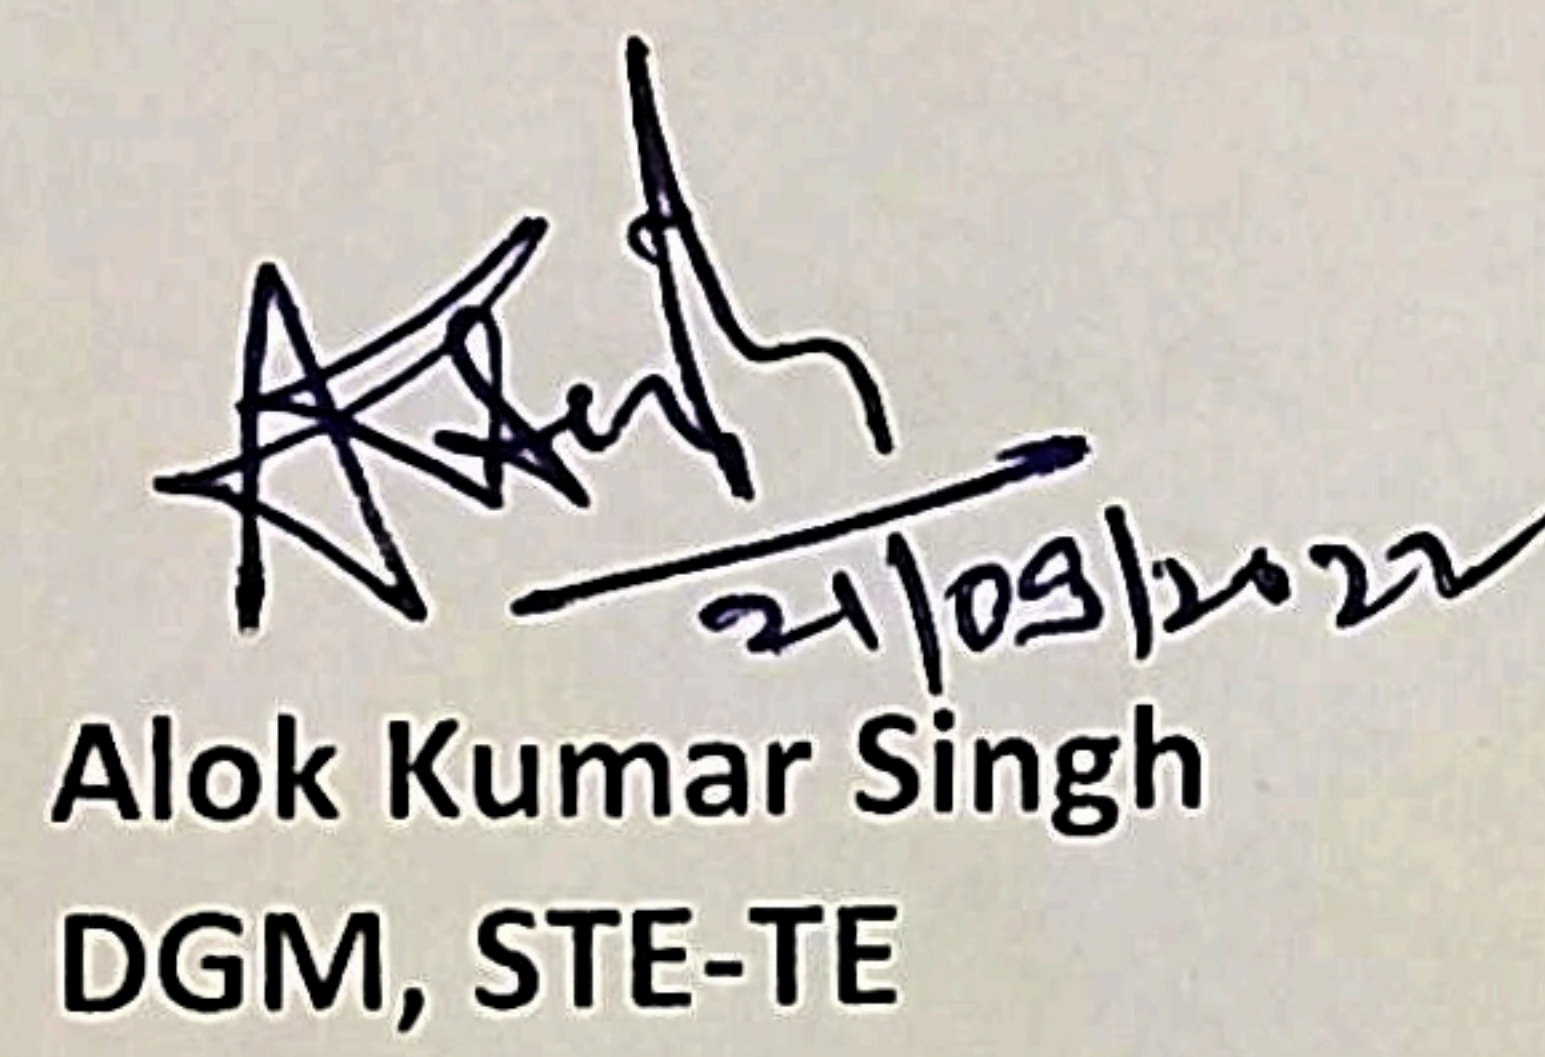 21/09/2022
Alok Kumar Singh
DGM, STE-TE